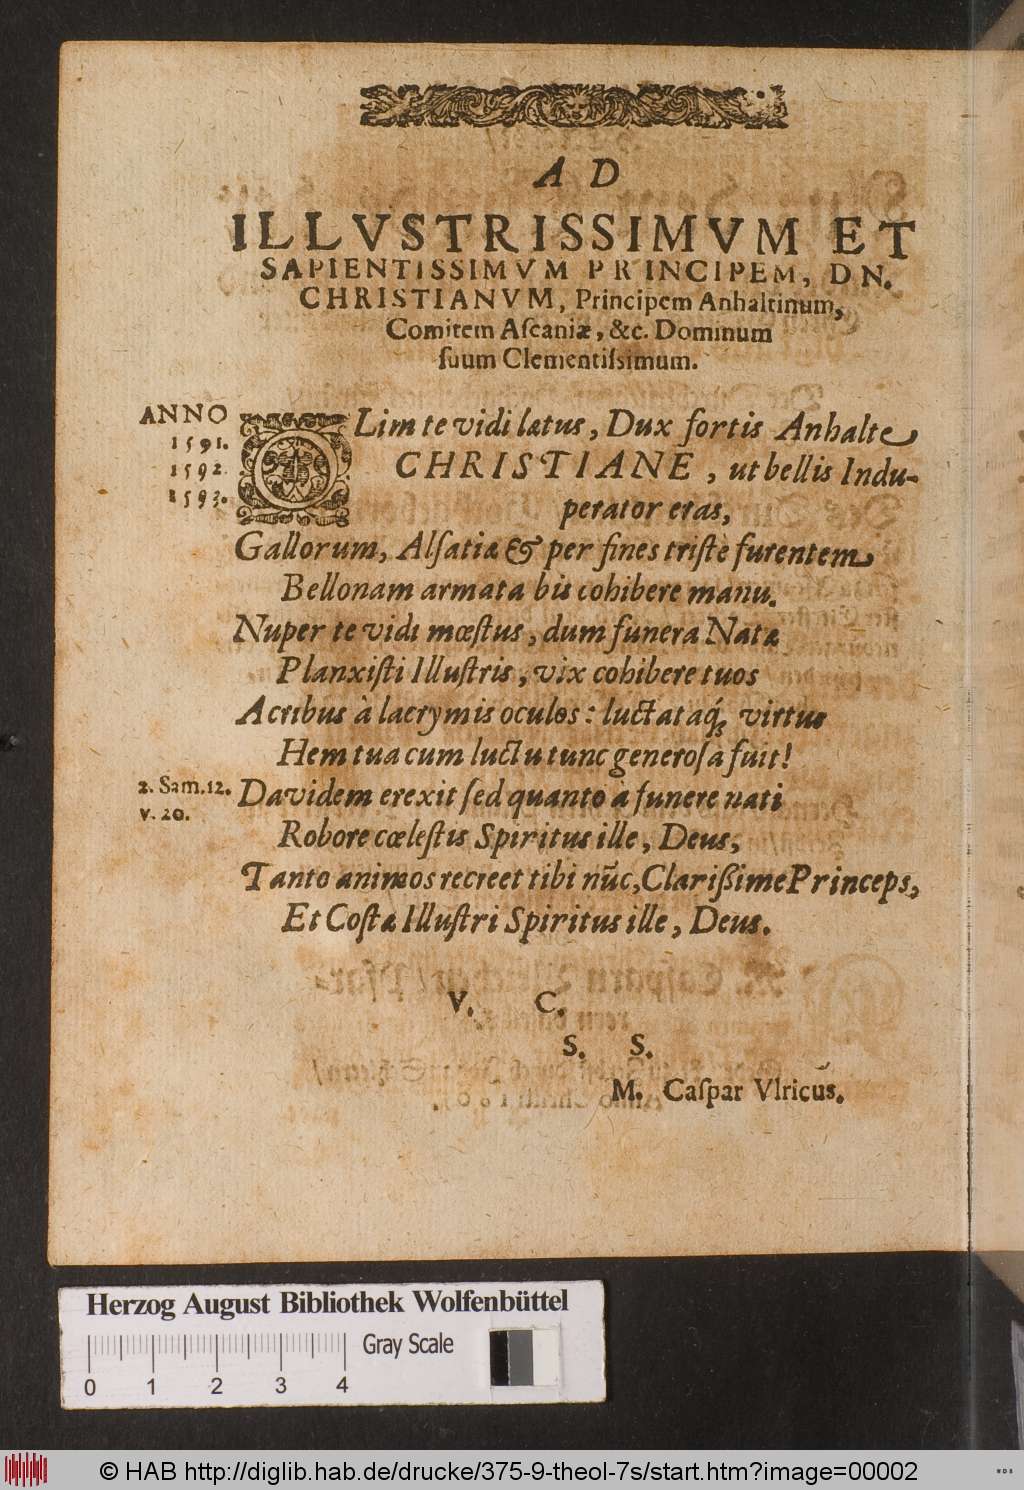 A D
ILLVSTRISSIMVM ET
SAPIENTISSIMVM PRINCIPEM, DN.
CHRISTIANVM, Principem Anhaltinum,
Comitem Aſcaniæ, &c. Dominum
ſuum Clementiſsimum.
ANNO
1591.
1592.
1593.
OLim te vidi lætus, Dux fortis Anhalte
CHRISTIANE, ut bellis Indu-
perator eras,
Gallorum, Alſatiæ & per fines triſtè furentem
Bellonam armata bis cohibere manu.
Nuper te vidi mœſtus, dum funera Natæ
Planxiſti Illuſtris, vix cohibere tuos
Acribus à lacrymis oculos: luctataq́; virtus
Hem tua cum luctu tunc generoſa fuit!
2. Sam. 12.
v. 20.
Davidem erexit ſed quanto à funere nati
Robore cœleſtis Spiritus ille, Deus,
Tanto animos recreet tibi nūc, Clarißime Princeps,
Et Coſtæ Illuſtri Spiritus ille, Deus.
V. C.
S. S.
M. Caſpar Vlricus.
Herzog August Bibliothek Wolfenbüttel
Gray Scale
0 1 2 3 4
© HAB http://diglib.hab.de/drucke/375-9-theol-7s/start.htm?image=00002